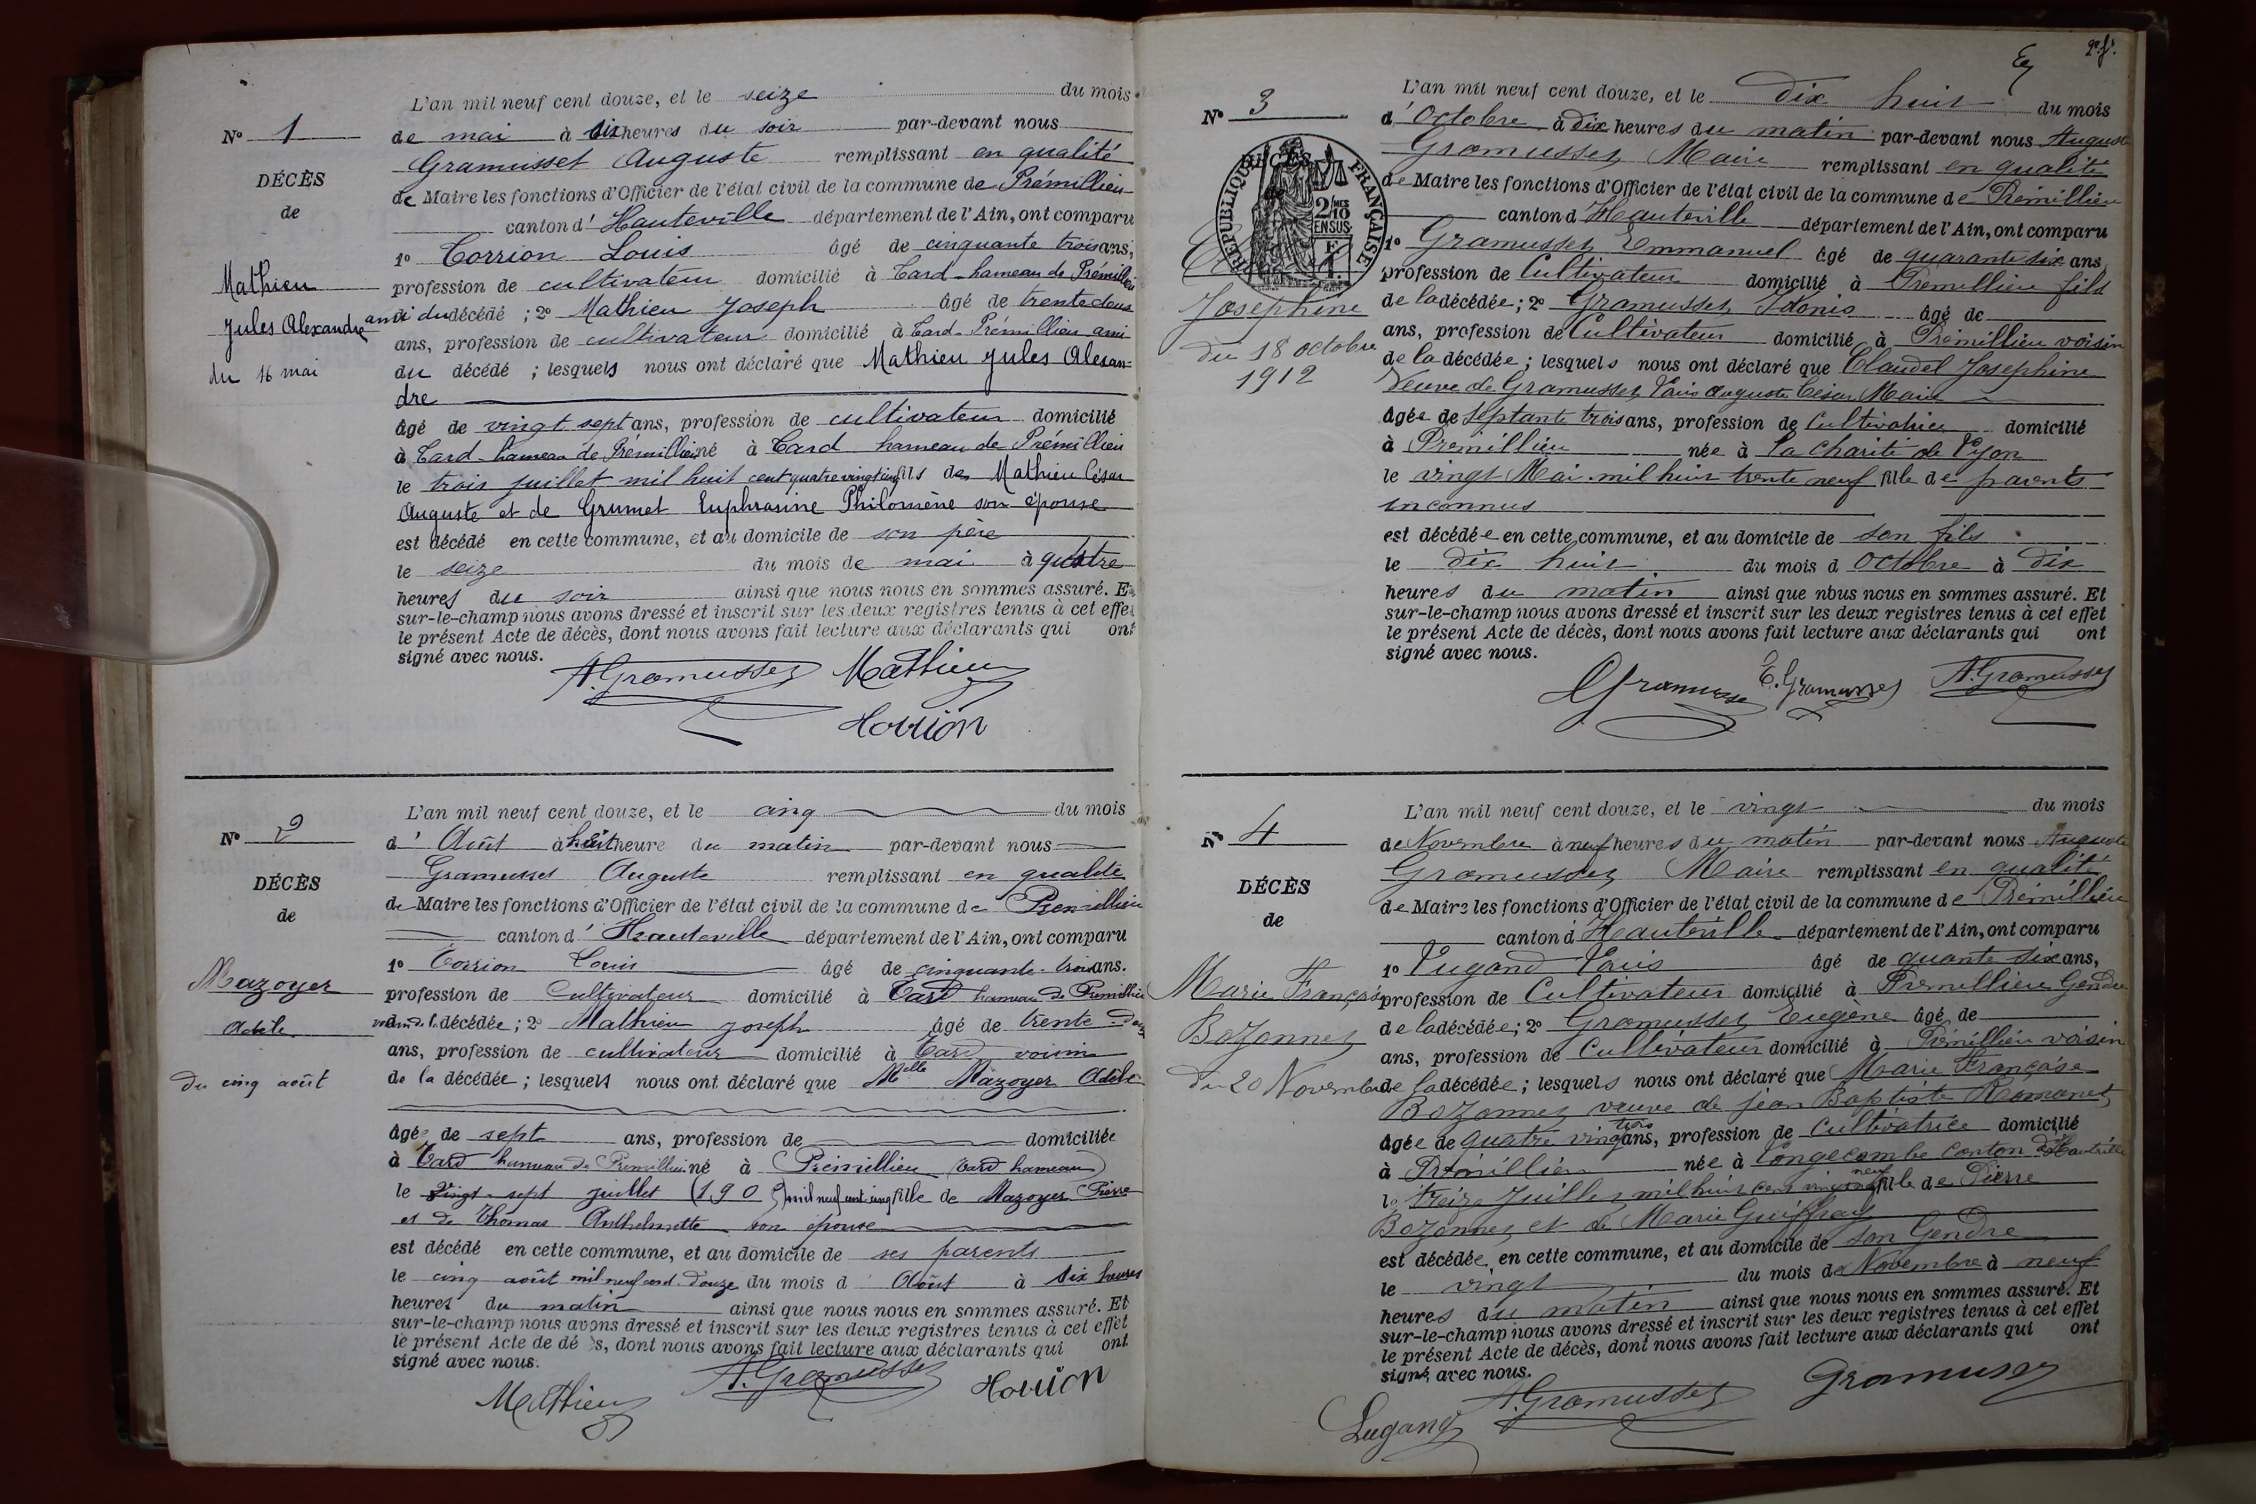 L'an mil neuf cent douze, et le seize du mois
N° 1
de mai à six heures du soir par-devant nous
Gramusset Auguste remplissant en qualité
DÉCÈS
de Maire les fonctions d'Officier de l'état civil de la commune de Prémillieu
de
canton d' Hauteville département de l'Ain, ont comparu
1° Corrion Louis âgé de cinquante trois ans,
Mathieu
profession de cultivateur domicilié à Tard-hameau de Prémillieu
Jules Alexandre
ami du décédé ; 2° Mathieu Joseph âgé de trente deux
ans, profession de cultivateur domicilié à Tard-Prémillieu ami
du 16 mai
du décédé ; lesquels nous ont déclaré que Mathieu Jules Alexan-
dre
âgé de vingt sept ans, profession de cultivateur domicilié
à Tard-hameau de Prémillieu né à Tard hameau de Prémillieu
le trois juillet mil huit cent quatre vingt cinq fils de Mathieu César
Auguste et de Grumet Euphrasine Philomène son épouse
est décédé en cette commune, et au domicile de son père
le seize du mois de mai à quatre
heures du soir ainsi que nous nous en sommes assuré. Et
sur-le-champ nous avons dressé et inscrit sur les deux registres tenus à cet effet
le présent Acte de décès, dont nous avons fait lecture aux déclarants qui ont
signé avec nous.
A. Gramusset Mathieu
Corrion
L'an mil neuf cent douze, et le cinq du mois
N° 2
d' Août à huit heure du matin par-devant nous
Gramusset Auguste remplissant en qualité
DÉCÈS
de Maire les fonctions d'Officier de l'état civil de la commune de Prémillieu
de
canton d' Hauteville département de l'Ain, ont comparu
1° Corrion Louis âgé de cinquante-trois ans.
Mazoyer
profession de Cultivateur domicilié à Tard hameau de Prémillieu
Adèle
de la décédée ; 2° Mathieu joseph âgé de trente-deux
ans, profession de cultivateur domicilié à Tard voisin
du cinq août
de la décédée ; lesquels nous ont déclaré que Melle Mazoyer Adèle
âgée de sept ans, profession de domiciliée
à Tard hameau de Prémillieu né à Prémillieu (Tard hameau)
le Vingt-sept juillet (190 ) mil neuf cent cinq fille de Mazoyer Pierre
et de Thomas Anthelmette son épouse
est décédé en cette commune, et au domicile de ses parents
le cinq août mil neuf cent douze du mois d Août à six heures
heures du matin ainsi que nous nous en sommes assuré. Et
sur-le-champ nous avons dressé et inscrit sur les deux registres tenus à cet effet
le présent Acte de dé s, dont nous avons fait lecture aux déclarants qui ont
signé avec nous.
Mathieu A. Gramusset Corrion
2e f.
L'an mil neuf cent douze, et le dix huit du mois
N° 3
d' Octobre à dix heures du matin par-devant nous Auguste
Gramusset Maire remplissant en qualité
DÉCÈS
RÉPUBLIQUE FRANÇAISE
2/10 MES EN SUS
de Maire les fonctions d'Officier de l'état civil de la commune de Prémillieu
canton d Hauteville département de l'Ain, ont comparu
1° Gramusset Emmanuel âgé de quarante six ans,
profession de Cultivateur domicilié à Prémillieu fils
Josephine
de la décédée ; 2° Gramusset âgé de
ans, profession de Cultivateur domicilié à Prémillieu voisin
du 18 octobre
1912
de la décédée ; lesquels nous ont déclaré que Claudel Josephine
Veuve de Gramusset Louis Auguste César Marie
âgée de septante trois ans, profession de Cultivatrice domicilié
à Prémillieu née à la charité de Lyon
le vingt Mai mil huit trente neuf fille de parents
inconnus
est décédée en cette commune, et au domicile de son fils
le dix huit du mois d Octobre à dix
heures du matin ainsi que nous nous en sommes assuré. Et
sur-le-champ nous avons dressé et inscrit sur les deux registres tenus à cet effet
le présent Acte de décès, dont nous avons fait lecture aux déclarants qui ont
signé avec nous.
Gramusset E. Gramusset A. Gramusset
L'an mil neuf cent douze, et le vingt du mois
N° 4
de Novembre à neuf heures du matin par-devant nous Auguste
Gramusset Maire remplissant en qualité
DÉCÈS
de Maire les fonctions d'Officier de l'état civil de la commune de Prémillieu
de
canton d Hauteville département de l'Ain, ont comparu
1° Lugand Louis âgé de quante six ans,
Marie Françoise
profession de Cultivateur domicilié à Prémillieu Gendre
Bozonnet
de la décédée ; 2° Gramusset Eugène âgé de
ans, profession de Cultivateur domicilié à Prémillieu voisin
du 20 Novembre
de la décédée ; lesquels nous ont déclaré que Marie Françoise
Bozonnet veuve de Jean Baptiste Romanet
âgée de quatre vingt trois ans, profession de Cultivatrice domicilié
à Prémillieu née à Longecombe canton d'Hauteville
le treize Juillet mil huit cent vingt neuf fille de Pierre
Bozonnet et de Marie Guiffray
est décédée en cette commune, et au domicile de son Gendre
le vingt du mois de Novembre à neuf
heures du matin ainsi que nous nous en sommes assuré. Et
sur-le-champ nous avons dressé et inscrit sur les deux registres tenus à cet effet
le présent Acte de décès, dont nous avons fait lecture aux déclarants qui ont
signé avec nous.
Lugand A. Gramusset Gramusset